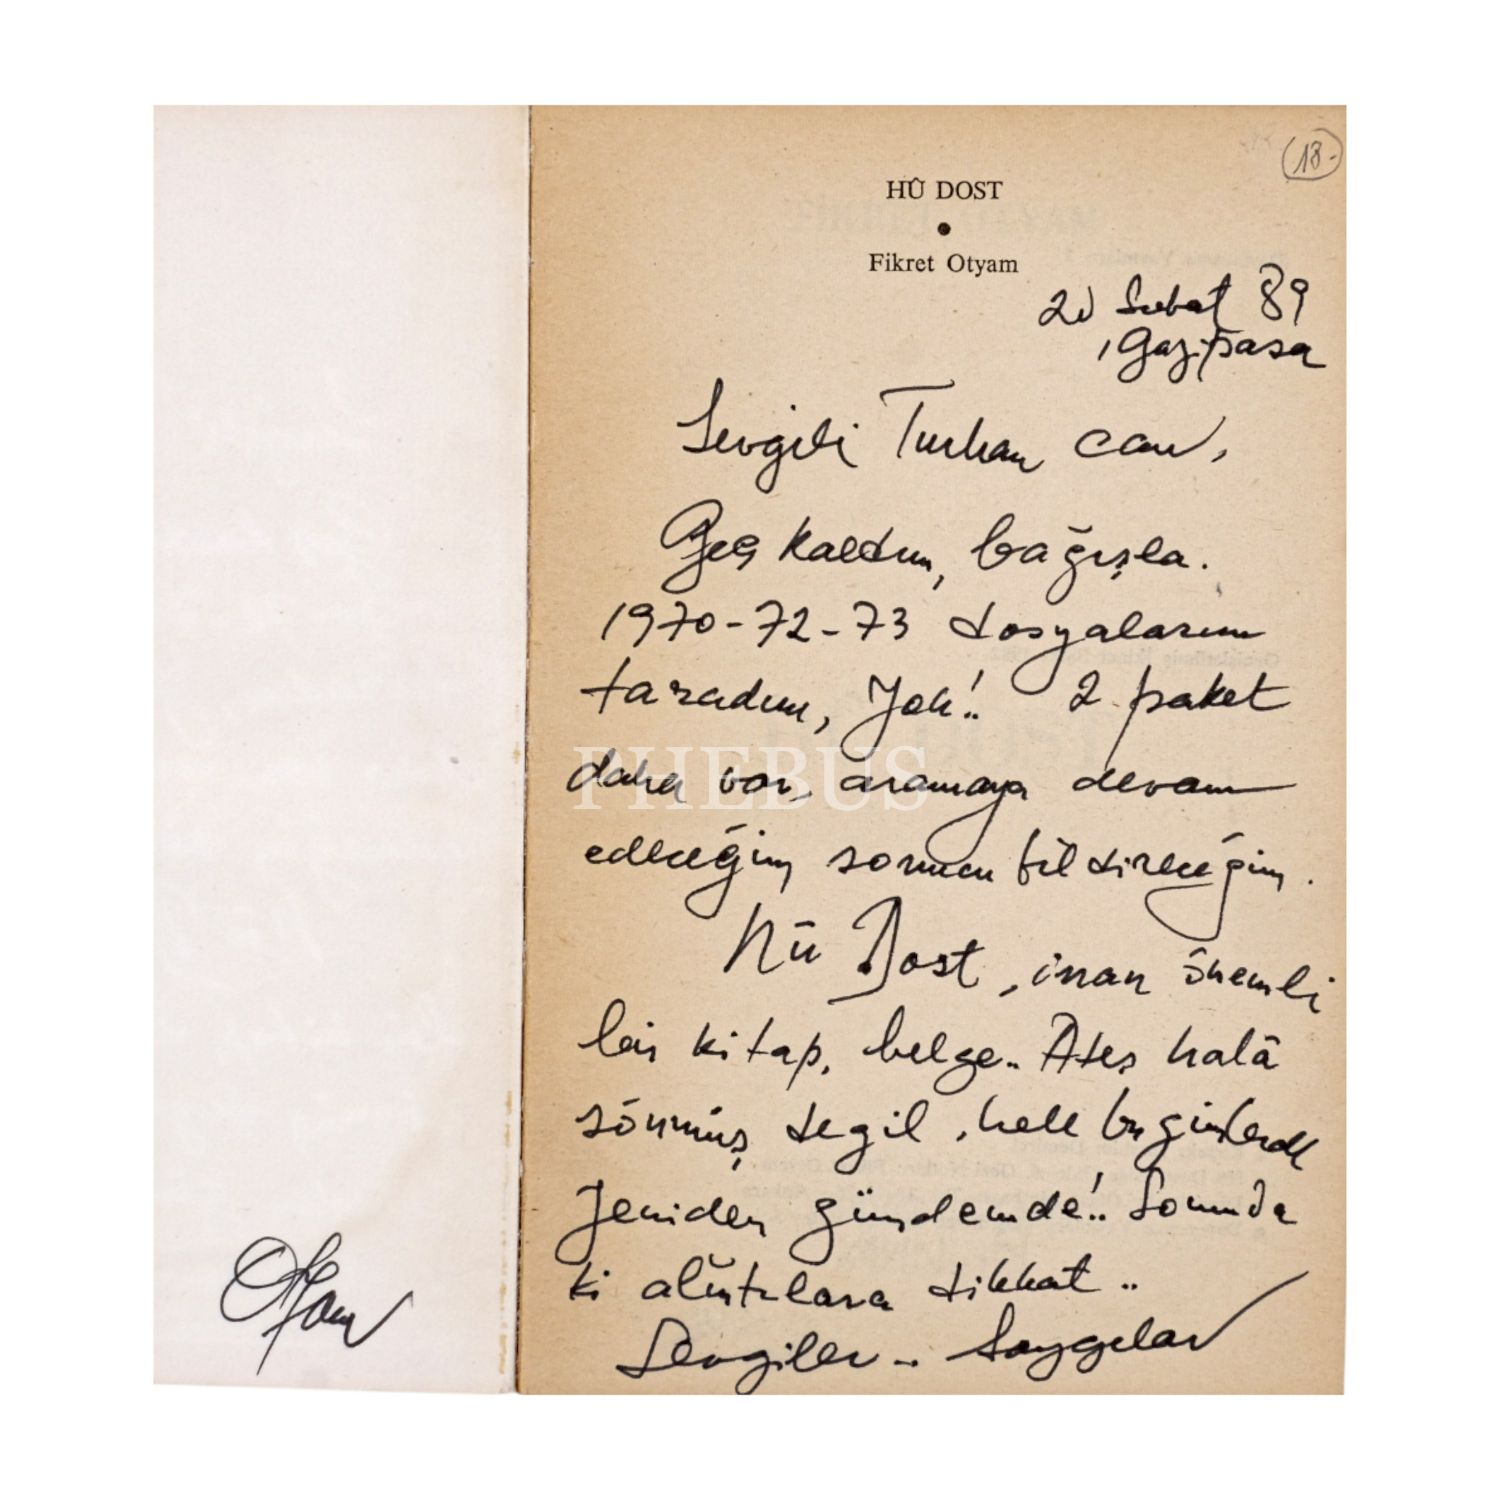 18-
HÛ DOST
Fikret Otyam
20 Şubat 89
Gazipaşa
Sevgili Turhan can,
Geç kaldım, bağışla.
1970-72-73 dosyalarımı
taradım, Yok!. 2 paket
daha var, aramaya devam
edeceğim sonucu bildireceğim.
Hû Dost, inan önemli
bir kitap, belge.. Ateş halâ
sönmüş değil, hele bu günlerde
yeniden gündemde!.. Sonunda
ki alıntılara dikkat..
Sevgiler.. Saygılar
Otyam
PHEBUS